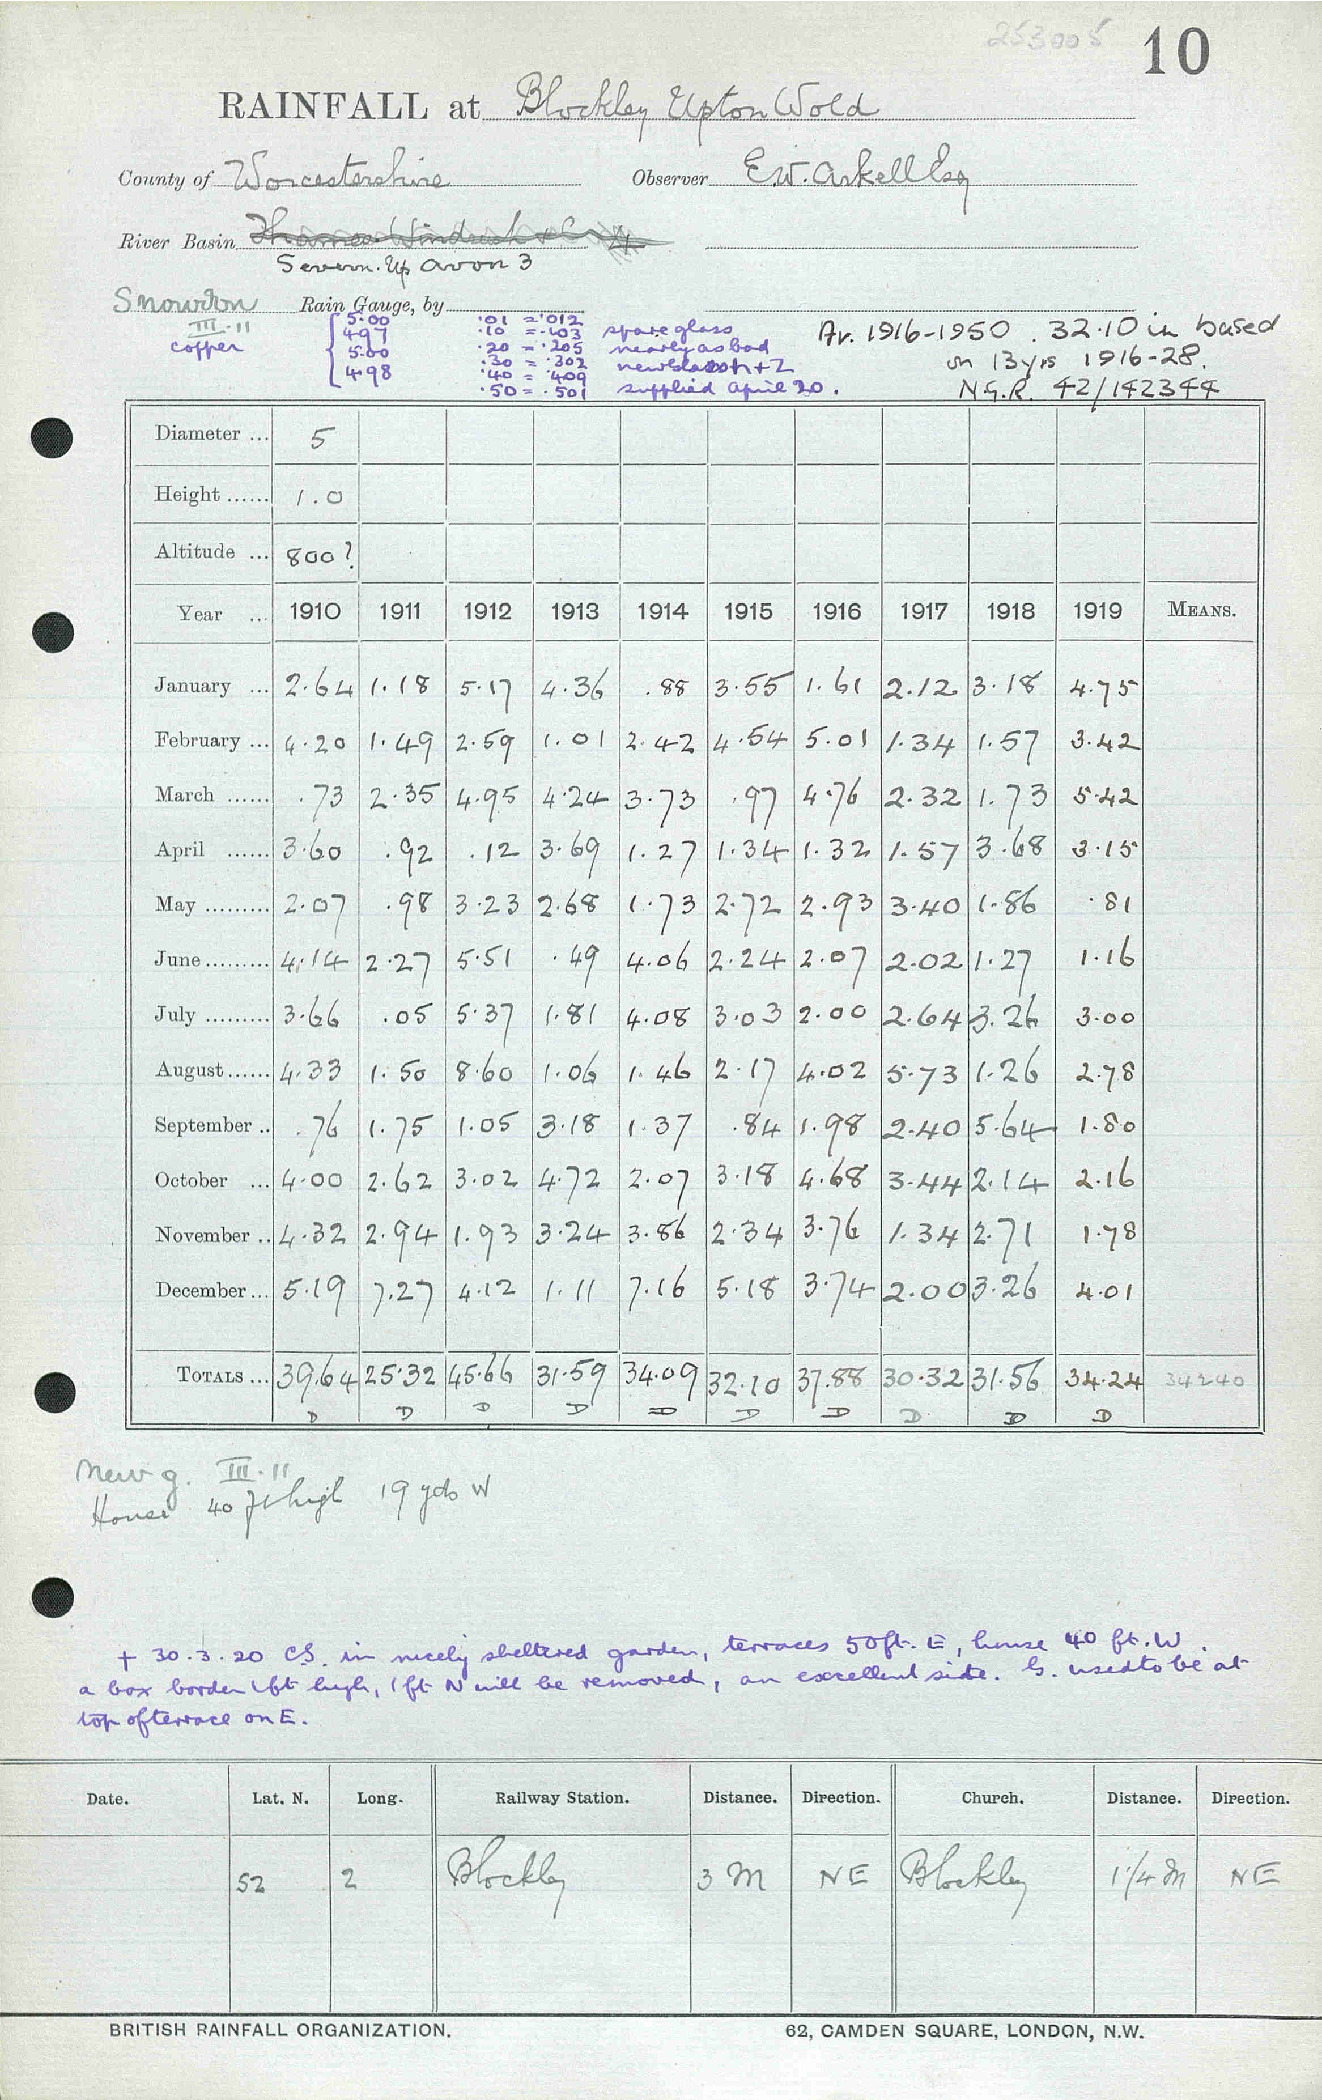 253005
10
RAINFALL at Blockley Upton Wold
County of Worcestershire Observer E.W. Arkell Esq
River Basin Thames Windrush
Severn. Up Avon 3
Snowdon Rain Gauge, by
III-11
copper
5.00
4.97
5.00
4.98
.01 = .012 spare glass
.10 = .103 nearly as bad
.20 = .205
.30 = .302
.40 = .409
.50 = .501 supplied April 20.
Av. 1916-1950. 32.10 in based
on 13 yrs 1916-28.
N.G.R. 42/142344
Diameter ... 5
Height ...... 1.0
Altitude ... 800?
Year ... 1910 1911 1912 1913 1914 1915 1916 1917 1918 1919 MEANS.
January ... 2.64 1.18 5.17 4.36 .88 3.55 1.61 2.12 3.18 4.75
February ... 4.20 1.49 2.59 1.01 2.42 4.54 5.01 1.34 1.57 3.42
March ...... .73 2.35 4.95 4.24 3.73 .97 4.76 2.32 1.73 5.42
April ...... 3.60 .92 .12 3.69 1.27 1.34 1.32 1.57 3.68 3.15
May ......... 2.07 .98 3.23 2.68 1.73 2.72 2.93 3.40 1.86 .81
June ......... 4.14 2.27 5.51 .49 4.06 2.24 2.07 2.02 1.27 1.16
July ......... 3.66 .05 5.37 1.81 4.08 3.03 2.00 2.64 3.26 3.00
August ...... 4.33 1.50 8.60 1.06 1.46 2.17 4.02 5.73 1.26 2.78
September .. .76 1.75 1.05 3.18 1.37 .84 1.98 2.40 5.64 1.80
October ... 4.00 2.62 3.02 4.72 2.07 3.18 4.68 3.44 2.14 2.16
November .. 4.32 2.94 1.93 3.24 3.86 2.34 3.76 1.34 2.71 1.78
December ... 5.19 7.27 4.12 1.11 7.16 5.18 3.74 2.00 3.26 4.01
TOTALS ... 39.64 25.32 45.66 31.59 34.09 32.10 37.88 30.32 31.56 34.24 34240
D D D D D D D D D D
New g. III.11
House 40 ft high 19 yds W
+ 30.3.20 CS. in nicely sheltered garden, terraces 50ft. E, house 40 ft. W.
a box border 1ft high, 1ft N will be removed, an excellent site. G. used to be at
top of terrace on E.
Date. Lat. N. Long. Railway Station. Distance. Direction. Church. Distance. Direction.
52 2 Blockley 3 M NE Blockley 1 1/4 M NE
BRITISH RAINFALL ORGANIZATION. 62, CAMDEN SQUARE, LONDON, N.W.